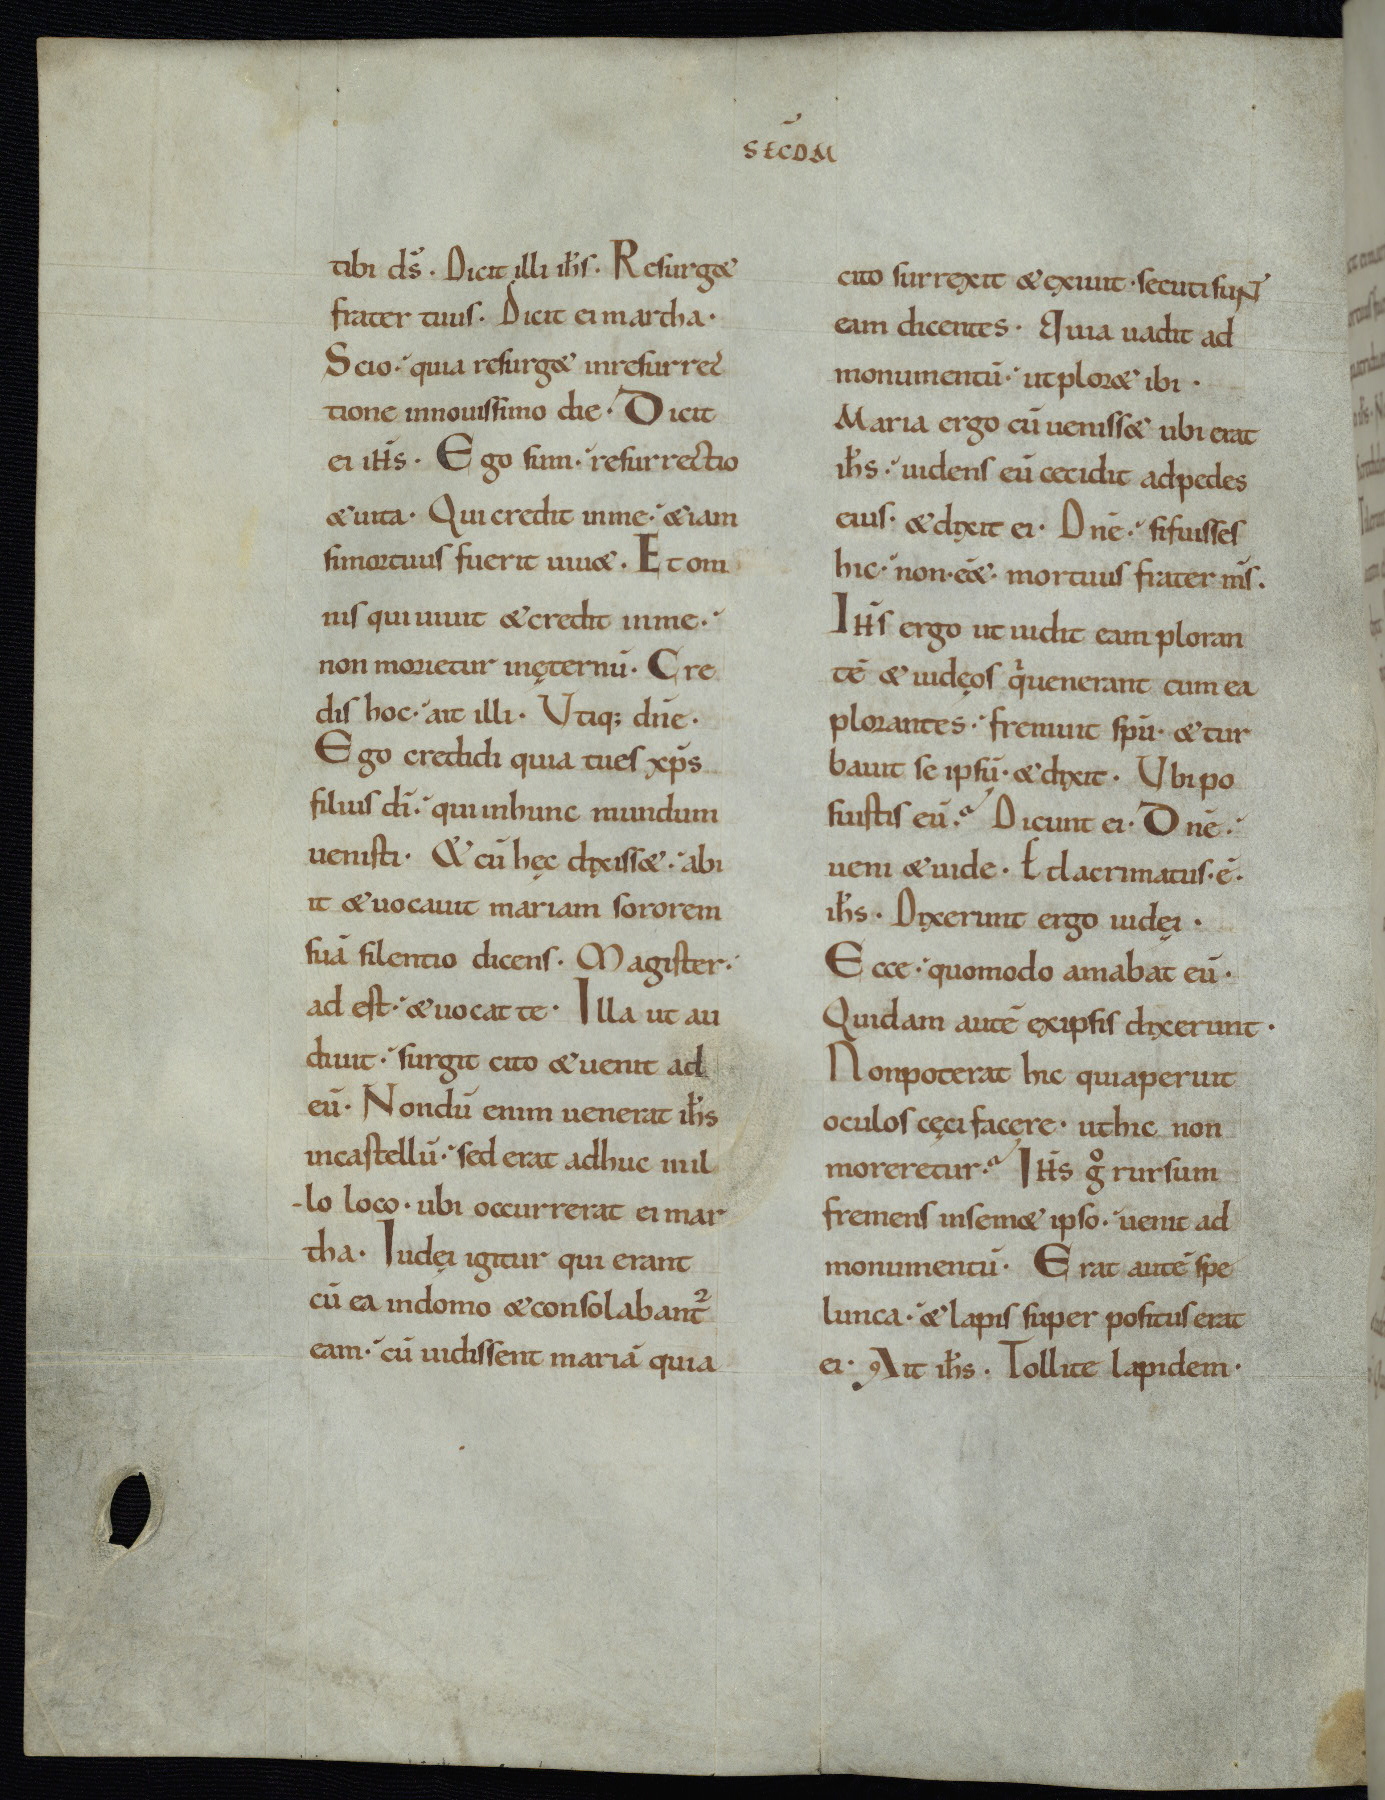 SECDM̄
tibi ds̄. Dicit illi ih̄s. Resurg&
frater tuus. Dicit ei martha.
Scio. quia resurg& inresurrec
tione innouissimo die. Dicit
ei iH̄s. Ego sum. resurrectio
&uita. Qui credit inme. &iam
simortuus fuerit uiu&. Et om
nis qui uiuit &credit inme.
non morietur inęternū. Cre
dis hoc. ait illi. Utiq; dn̄e.
Ego credidi quia tues xp̄s
filius dī. qui inhunc mundum
uenisti. & cū hęc dixiss&. abi
it &uocauit mariam sororem
suā silentio dicens. Magister.
ad est. &uocat te. Illa ut au
diuit. surgit cito &uenit ad
eū. Nondū enim uenerat ih̄s
incastellū. sed erat adhuc inil
-lo loco. ubi occurrerat ei mar
tha. Iudęi igitur qui erant
cū ea indomo &consolabant᷑
eam. cū uidissent mariā quia
cito surrexit &exiuit. secuti suNT
eam dicentes. Quia uadit ad
monumentū. utplor& ibi.
Maria ergo cū ueniss& ubi erat
ih̄s. uidens eū cecidit adpedes
eius. &dixit ei. Dn̄e. sifuisses
hic. non.eē&. mortuus frater m̄s.
IH̄s ergo ut uidit eam ploran
tē &iudęos q̇uenerant cum ea
plorantes. fremuit spū. &tur
bauit se ipsū. &dixit. Ubi po
suistis eū. Dicunt ei. Dn̄e.
ueni &uide. Et lacrimatus.ē.
ih̄s. Dixerunt ergo iudęi.
Ecce. quomodo amabat eū.
Quidam autē exipsis dixerunt.
Nonpoterat hic quiaperuit
oculos cęci facere. uthic non
moreretur. IH̄s g̊ rursum
fremens insem&ipso. uenit ad
monumentū. Erat autē spe
lunca. &lapis super positus erat
ei. Ait ih̄s. Tollite lapidem.